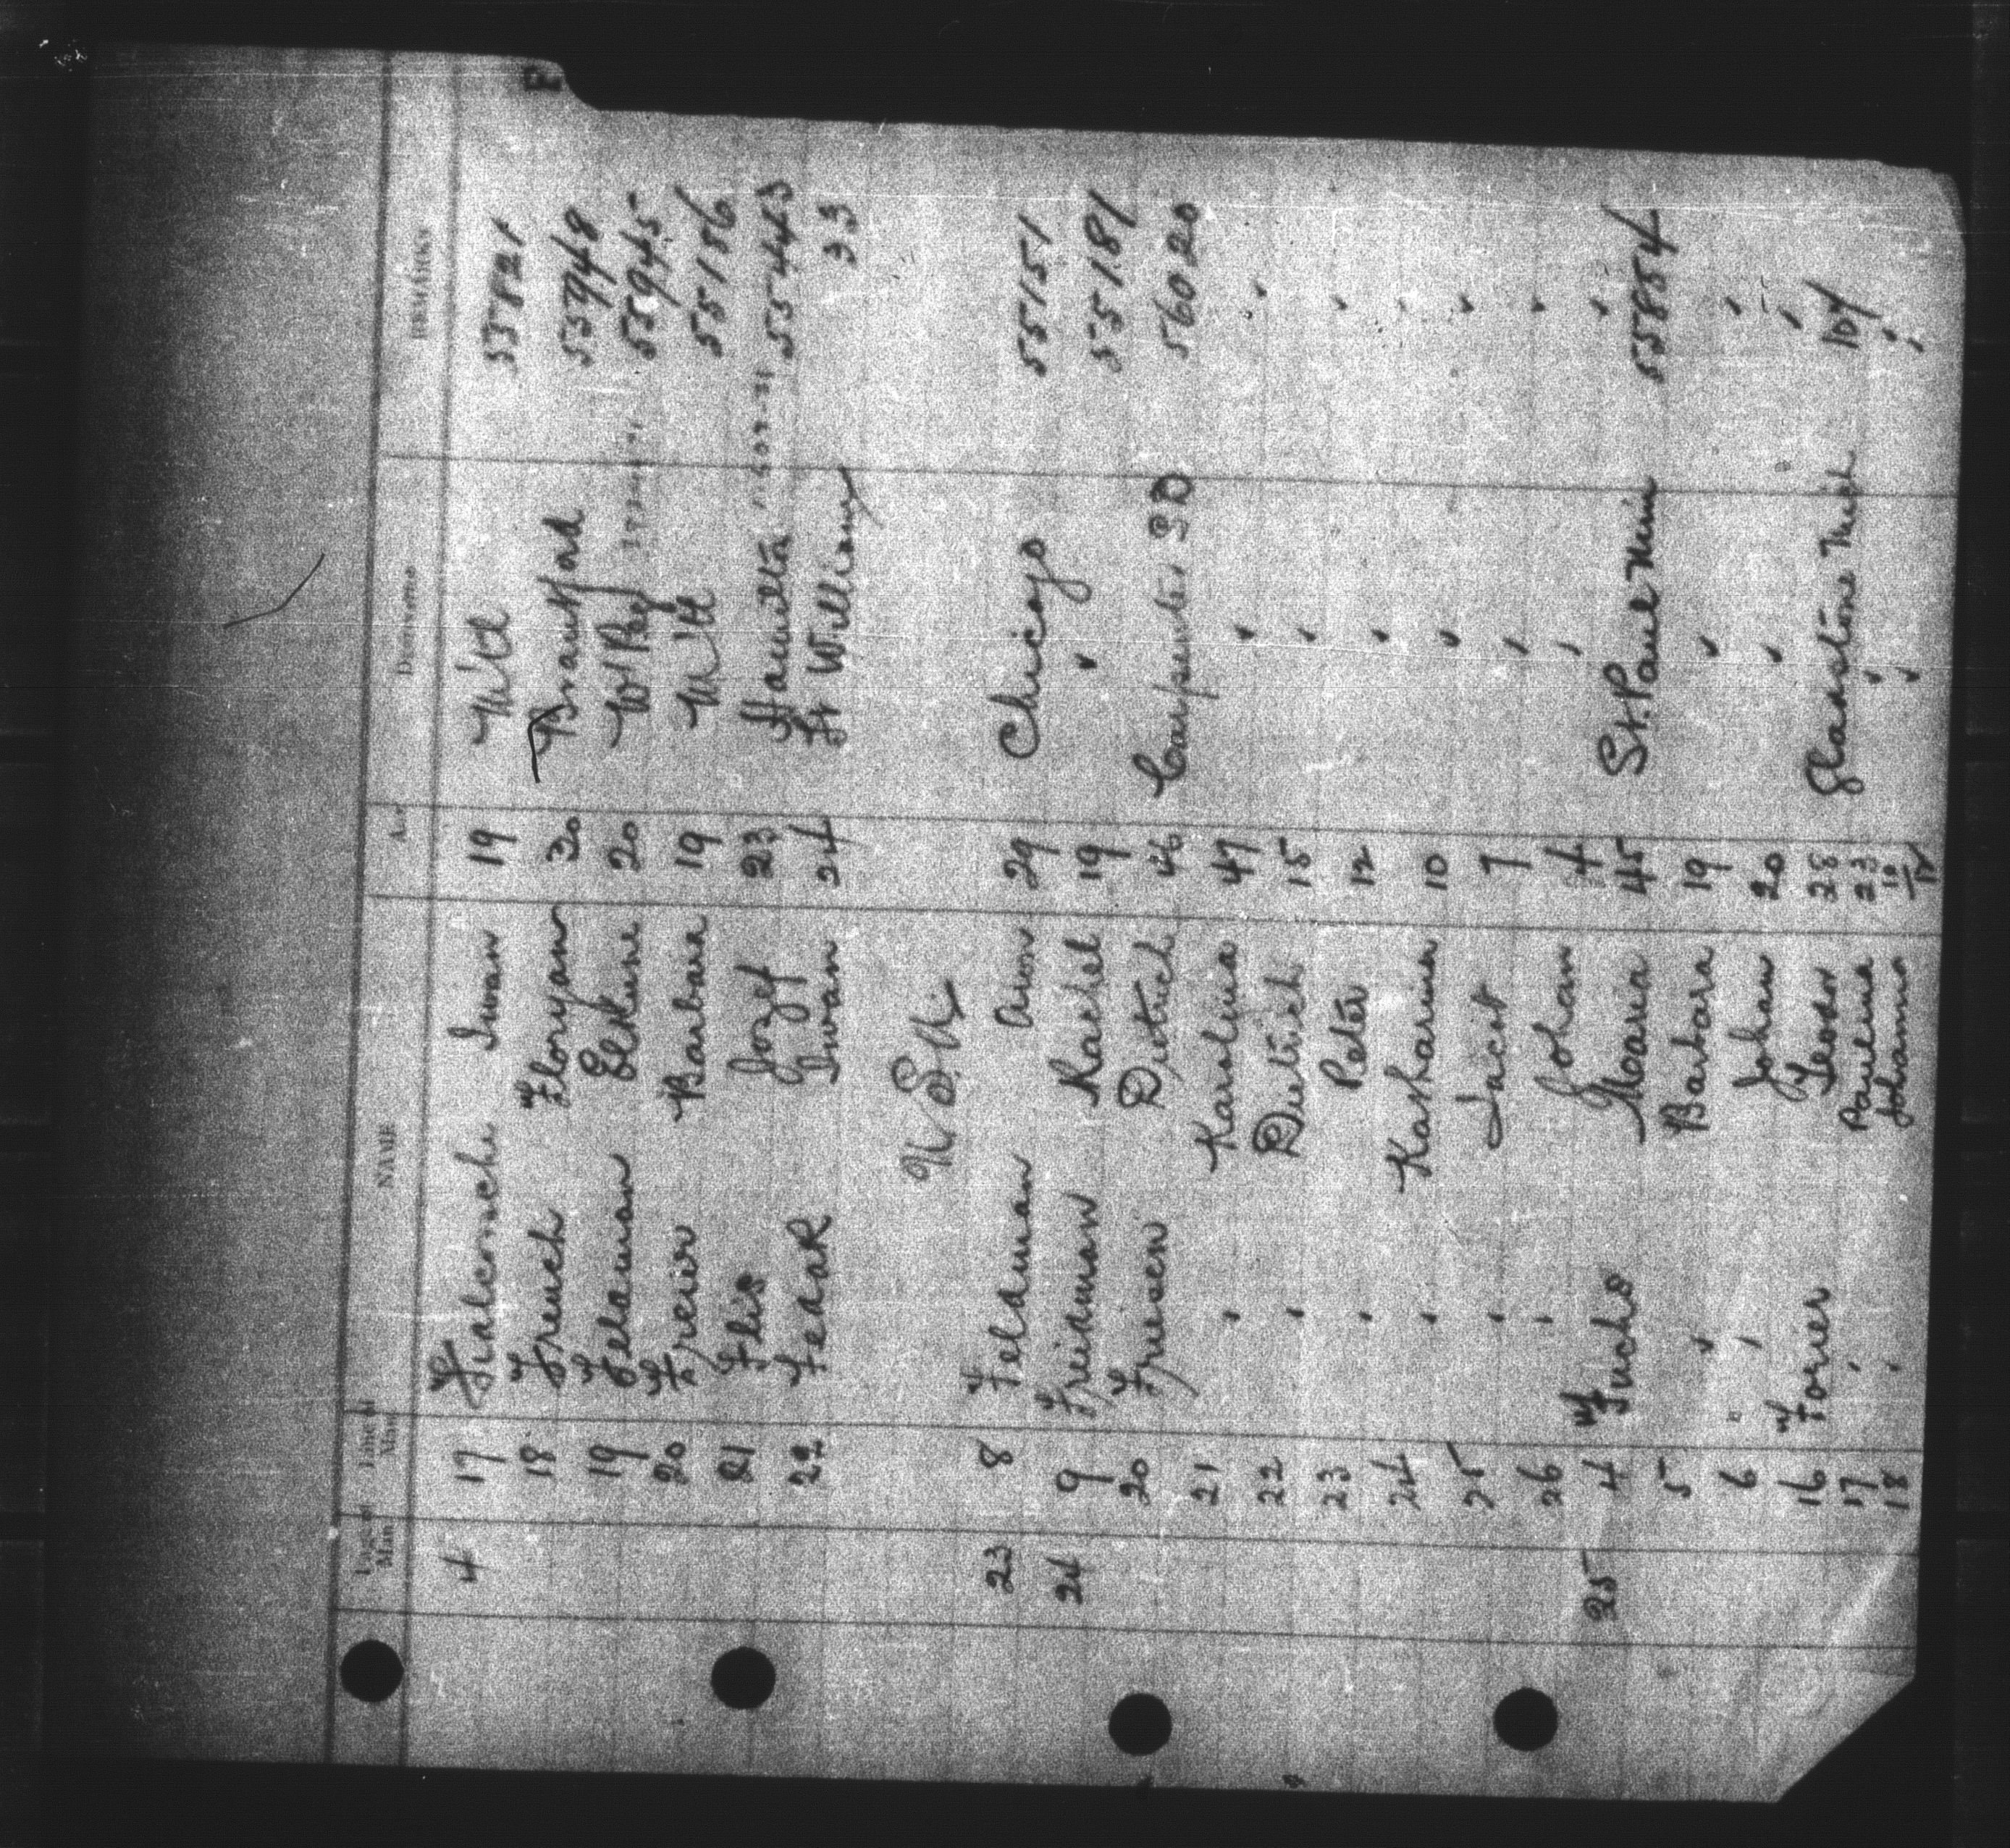 F
Page of Man. Line of Man. NAME AGE DESTINATION REMARKS
4 17 Fialconschi Iwan 19 M'tl 55821
18 French Floryan 30 Brantford 55948
19 Feldman Elkune 20 W'Peg 55945
20 Freier Barbara 19 M'tl 55156
21 Flis Jozef 23 Hamilton 55443
22 Fedak Iwan 24 Ft William 33
U.S.A.
23 8 Feldman Aron 29 Chicago 55151
24 9 Freidman Rachel 19 " 55181
20 Friesen Dietrich 46 Carpenter SD 56020
21 " Karolina 47 " "
22 " Dietrich 15 " "
23 " Peter 12 " "
24 " Katharina 10 " "
25 " Jacob 7 " "
26 " Johan 4 " "
25 4 Fuchs Maria 45 St. Paul Minn 55854
5 " Barbara 19 " "
6 " Johan 20 " "
16 Forier Teodor 28 Gladstone Mich
17 " Paulina 23 " "
18 " Johanna 10/12 " "